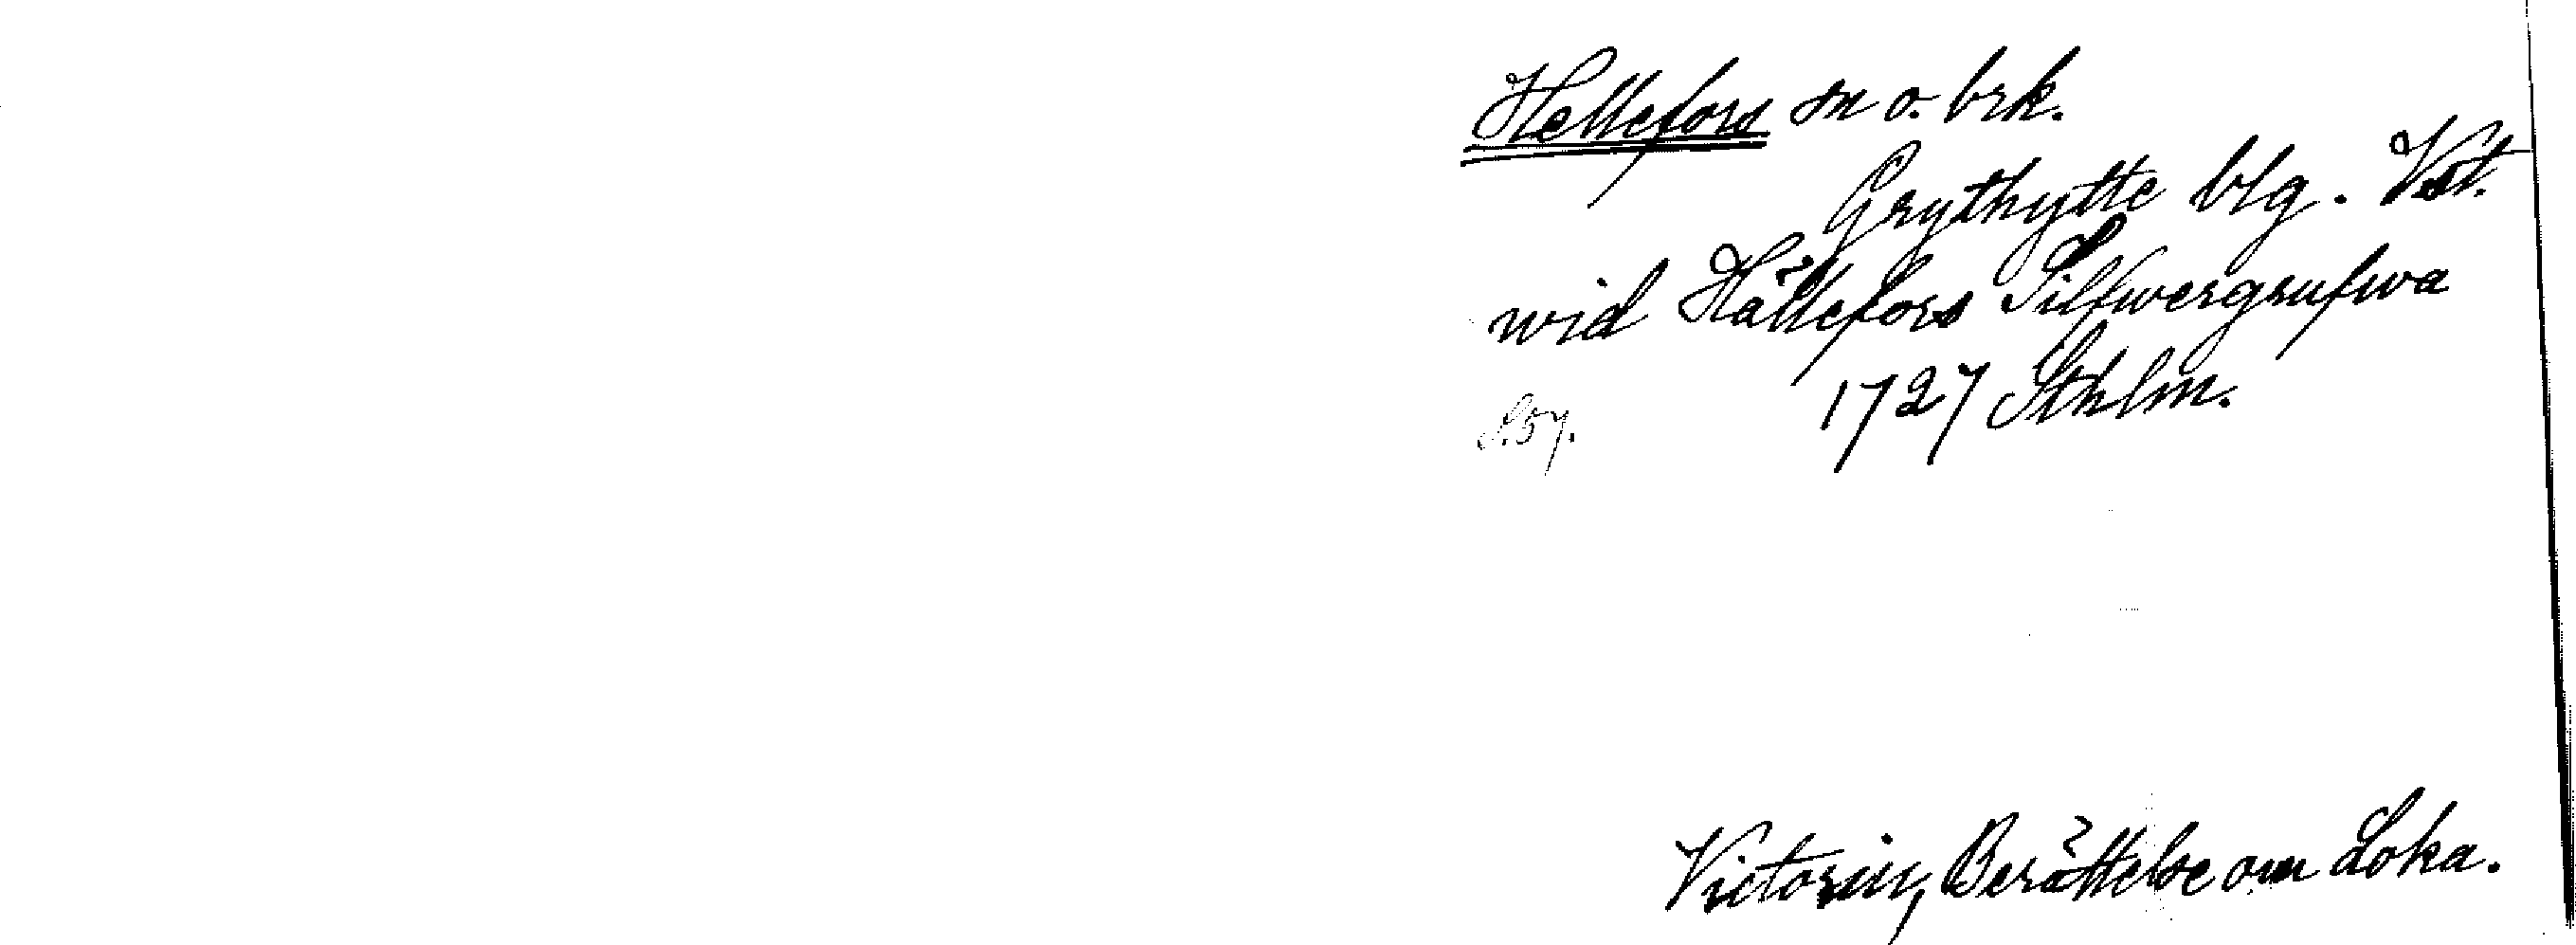 Hellefors sn o. brk.
Grythytte blg. Vstl.
wid Hällefors Silfwergrufwa
1727 Sthlm.
S. 57.
Victorin, Berättelse om Loka.